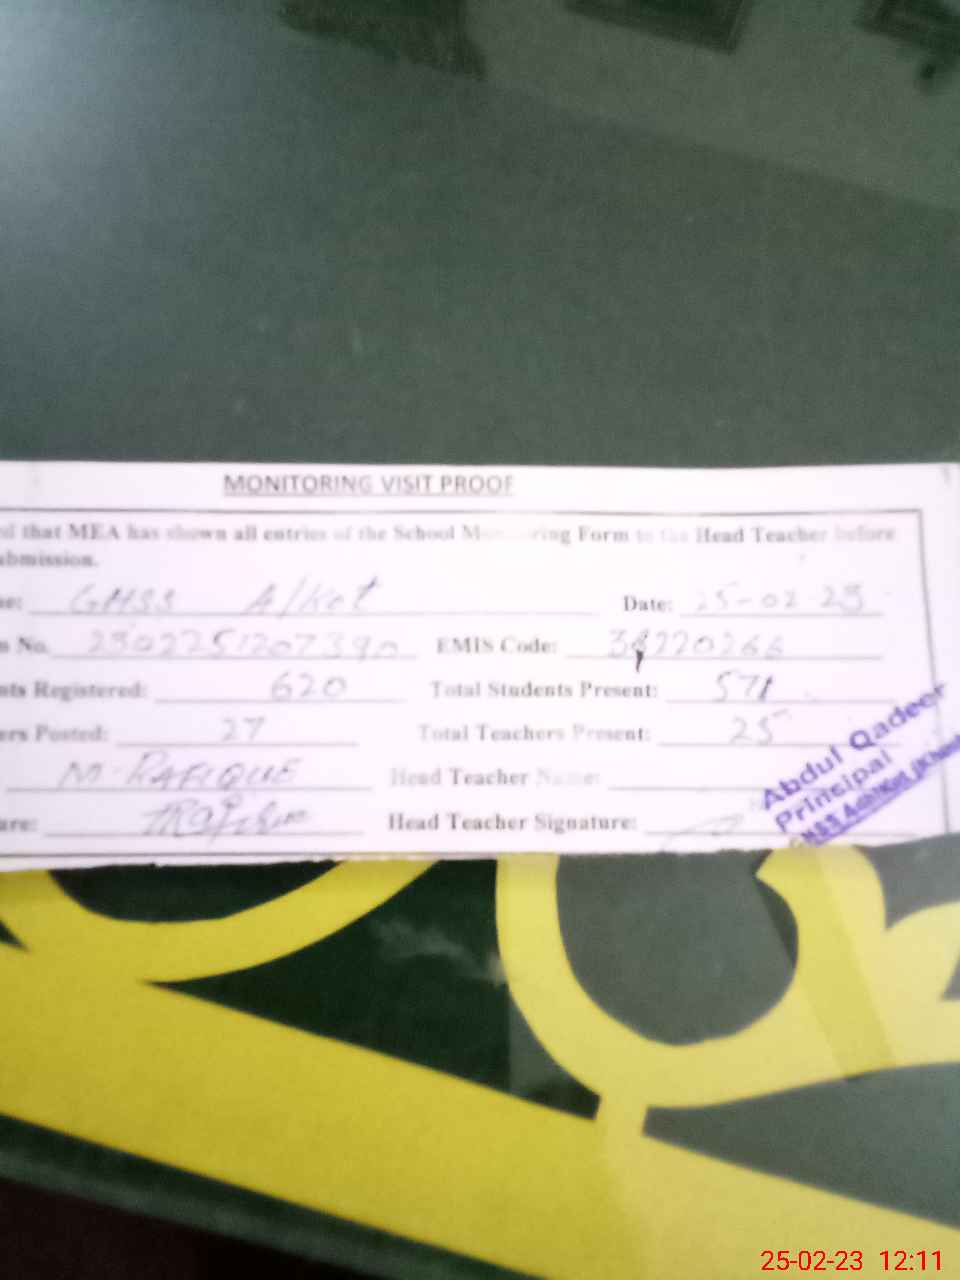 MONITORING VISIT PROOF
that MEA has shown all entries of the School Form to the Head Teacher before
bmission.
GHSS A/Kot Date: 25-02-23
No. EMIS Code:
nts Registered: 620 Total Students Present: 571
ers Posted: 27 Total Teachers Present: 25
M-RAFIQUE Head Teacher Name:
ure: Head Teacher Signature:
Abdul Qadeer
Principal
25-02-23 12:11